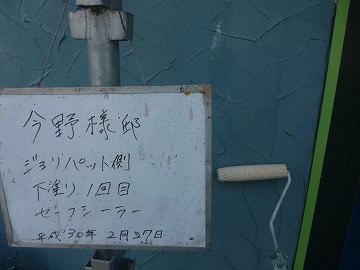 今野様邸
ジョリパット側
下塗り1回目
ゼーフシーラー
平成30年2月27日